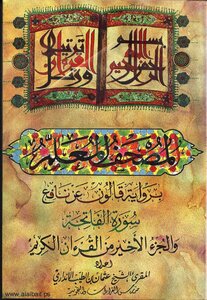 بسم الله الرحمن الرحيم
ورتل القرآن ترتيلا
المصحف المعلم
برواية قالون عن نافع
سورة الفاتحة
والجزء الأخير من القرآن الكريم
المقرئ الشيخ عثمان بن الطيب الأنداري
www.alaibait.ps